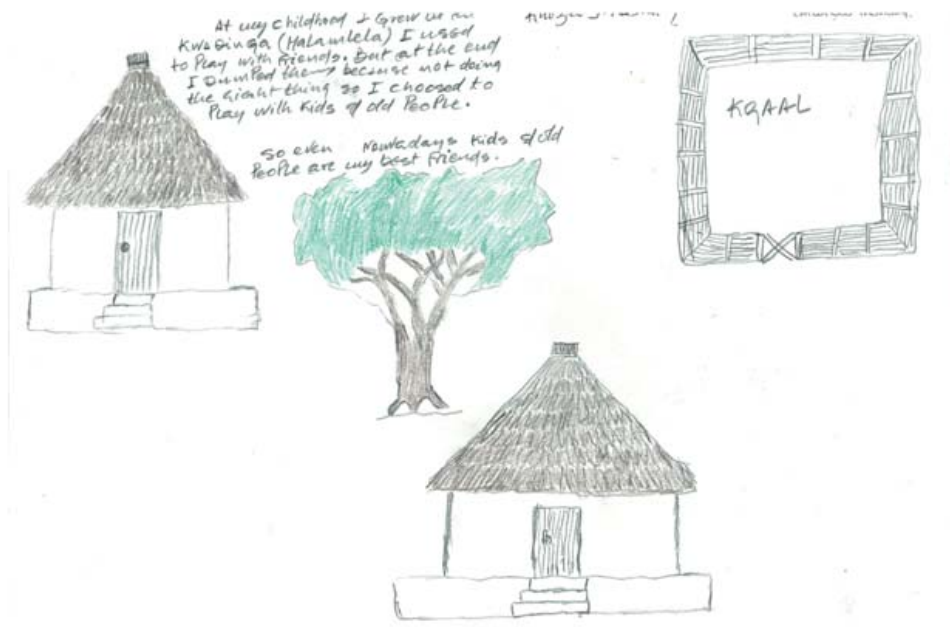 At my childhood I Grew up in
KwaQinga (Malamlela) I used
to Play with friends. But at the end
I Dumped them because not doing
the right thing so I choosed to
Play with Kids of old People.
so even Nowadays Kids of old
People are my best friends.
KRAAL